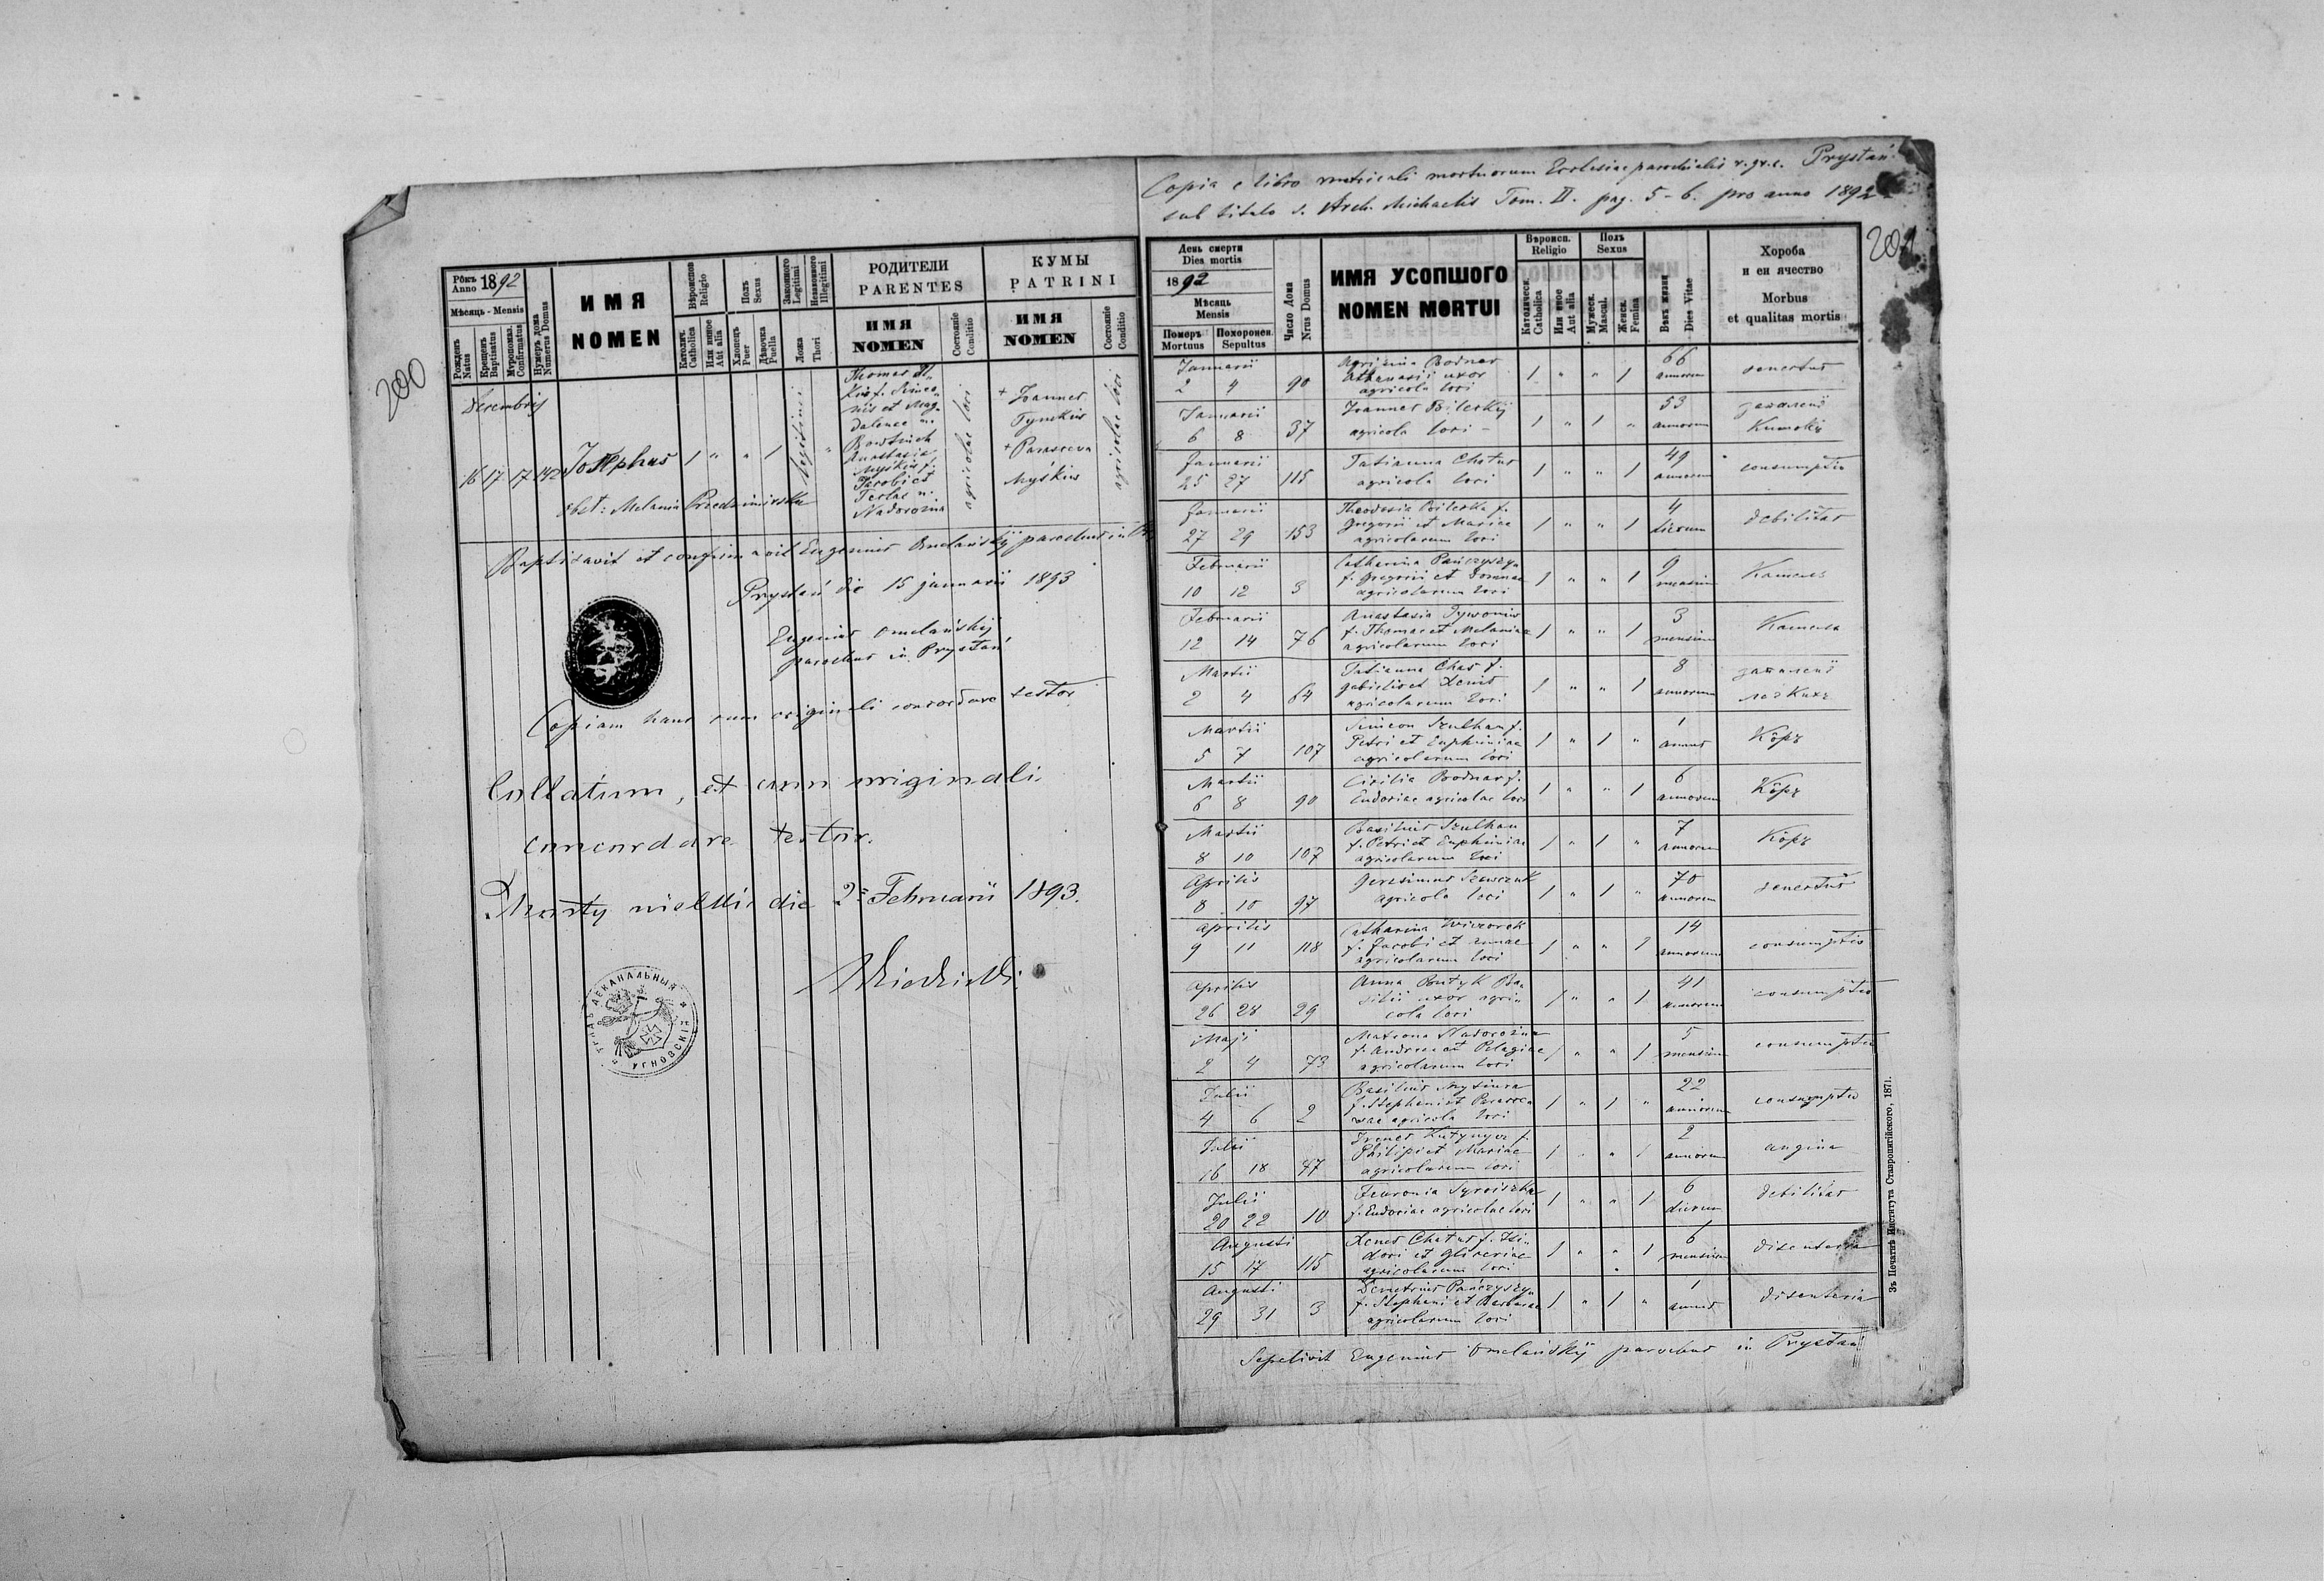 200
Рôкъ Anno 1892
Мѣсяць - Mensis
Рожденъ Natus
Крещенъ Baptisatus
Мѵропомаз. Confirmatus
Нумеръ дома Numerus Domus
ИМЯ
NOMEN
Вѣроиспов Religio
Католич. Catholica
Или инное Aut alia
Полъ Sexus
Хлопецъ Puer
Дѣвочка Puella
Законного Legitimi
Незаконного Illegitimi
Ложа Thori
РОДИТЕЛИ
PARENTES
ИМЯ
NOMEN
Состояніе Conditio
КУМЫ
PATRINI
ИМЯ
NOMEN
Состояніе Conditio
Decembris
16 17 17 142 Josephus 1 " " 1 legitimi "
Anastasia
Myśkiw f.
Jacobi et
Teclae n.
Nadorożna
agricolae loci
+ Joannes
Tymkiw
+ Parasceva
Myśkiw
agricolae loci
obst: Melania
Baptisavit et confirmavit Eugenius Omelańskij parochus in
Prystań die 15 januarii 1893
Eugenius Omelańskij
parochus in Prystań
Copiam hanc cum originali concordare testor
Collatum, et cum originali
concordare testor.
Mosty wielkie die 2 Februarii 1893.
ДЕКАНАЛЬНЫЙ
Copia e libro metricali mortuorum Ecclesiae parochialis r. gr. c. Prystań
sub titulo S. Arch. Michaelis Tom. II. pag. 5-6. pro anno 1892
201
День смерти
Dies mortis
1892
Мѣсяць
Mensis
Померъ Mortuus
Похоронен. Sepultus
Число Дома Nrus Domus
ИМЯ УСОПШОГО
NOMEN MORTUI
Вѣроисп. Religio
Католическ. Catholica
Или иное Aut alia
Полъ Sexus
Мужеск. Mascul.
Женск. Femina
Вѣкъ жизни Dies Vitae
Хороба
и еи ячество
Morbus
et qualitas mortis
Januarii
2 4 90 Agripina Bodnar
Athanasii uxor
agricola loci 1 " " 1 66 annorum senectus
Januarii
6 8 37 Joannes Bileckij
agricola loci 1 " 1 " 53 annorum
Januarii
25 27 115 Tatianna Chatus
agricola loci 1 " " 1 49 annorum consumptio
Januarii
27 29 153 Theodosia Bilecka f.
Gregorii et Mariae
agricolarum loci 1 " " 1 4 dierum debilitas
Februarii
10 12 3 Catharina Pańczyszyn
f. Gregorii et Domnae
agricolarum loci 1 " " 1 9 mensium Кашель
Februarii
12 14 76 Anastasia
f. Thomae et Melaniae
agricolarum loci 1 " " 1 3 mensium Кашель
Martii
2 4 64 Tatianna Chas f.
Gabrielis et Xenis
agricolarum loci 1 " " 1 8 annorum запаленї
легкихъ
Martii
5 7 107 Simeon Szulhan f.
Petri et Euphimiae
agricolarum loci 1 " 1 " 1 annus Кôръ
Martii
6 8 90 Cicilia Bodnar f.
Eudoxiae agricolae loci 1 " " 1 6 annorum Кôръ
Martii
8 10 107 Basilius Szulhan
f. Petri et Euphimiae
agricolarum loci 1 " 1 " 7 annorum Кôръ
Aprilis
8 10 97 Gerasimus Szewczuk
agricola loci 1 " 1 " 70 annorum senectus
Aprilis
9 11 118 Catharina Wiczorek
f. Jacobi et Annae
agricolarum loci 1 " " 1 14 annorum consumptio
Aprilis
26 28 29 Anna Butyk Ba-
silii uxor agri-
cola loci 1 " " 1 41 annorum consumptio
Maji
2 4 73 Matrona Nadorożna
f. Andreae et Pelagiae
agricolarum loci 1 " " 1 5 mensium consumptio
Julii
4 6 2 Basilius
f. Stephani et Parasce-
vae agricola loci 1 " 1 " 22 annorum consumptio
Julii
16 18 47
Philipi et Mariae
agricolarum loci 1 " " 1 2 annorum angina
Julii
20 22 10 Fevronia
f. Eudoxiae agricolae loci 1 " " 1 6 dierum debilitas
Augusti
15 17 115 Xenes Chatus f. Isi-
dori et Gliceriae
agricolarum loci 1 " " 1 6 mensium disenteria
Augusti
29 31 3 Demetrius Pańczyszyn
f. Stephani et Barbarae
agricolarum loci 1 " 1 " 1 annus disenteria
Sepelivit Eugenius Omelańskij parochus in Prystań
Зъ Печатнѣ Института Ставропигійского, 1871.